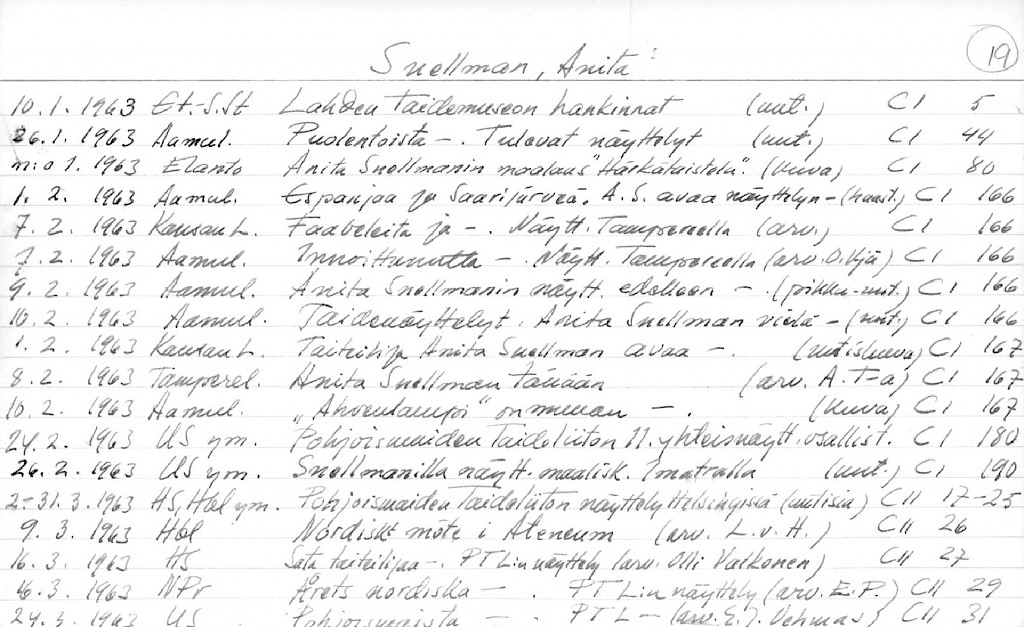 19
Snellman, Anita
10.1.1963 Et.-S.St Lahden Taidemuseon hankinnat (uut.) CI 5
26.1.1963 Aamul. Puolentoista -. Tulevat näyttelyt (uut.) CI 44
n:o 1.1963 Elanto Anita Snellmanin maalaus "Härkätaistelu". (kuva) CI 80
1.2.1963 Aamul. Espanjaa ja Saarijärveä. A.S. avaa näyttelyn - (haast.) CI 166
7.2.1963 Kansan L. Faabeleita ja -. Näytt. Tampereella (arv.) CI 166
7.2.1963 Aamul. Innoittunutta -. Näytt. Tampereella (arv. O.Vjä) CI 166
9.2.1963 Aamul. Anita Snellmanin näytt. edelleen -. (pikku-uut.) CI 166
10.2.1963 Aamul. Taidenäyttelyt. Anita Snellman vielä - (uut.) CI 166
1.2.1963 Kansan L. Taiteilija Anita Snellman avaa -. (uutiskuva) CI 167
8.2.1963 Tamperel. Anita Snellman tänään (arv. A.T-a) CI 167
10.2.1963 Aamul. "Ahvenlampi" on -. (kuva) CI 167
24.2.1963 US ym. Pohjoismaiden Taideliiton 11. yhteisnäytt. osallist. CI 180
26.2.1963 US ym. Snellmanilla näytt. maalisk. Imatralla (uut.) CI 190
2-31.3.1963 HS, Hbl ym. Pohjoismaiden Taideliiton näyttely Helsingissä (uutisia) CII 17-25
9.3.1963 Hbl Nordiskt möte i Ateneum (arv. L.v.H.) CII 26
16.3.1963 HS Sata taiteilijaa -. PTL:n näyttely (arv. Olli Valkonen) CII 27
16.3.1963 NPr Årets nordiska -. PTL:n näyttely (arv. E.P.) CII 29
24.3.1963 US - . PTL - (arv. E.J. Vehmas) CII 31